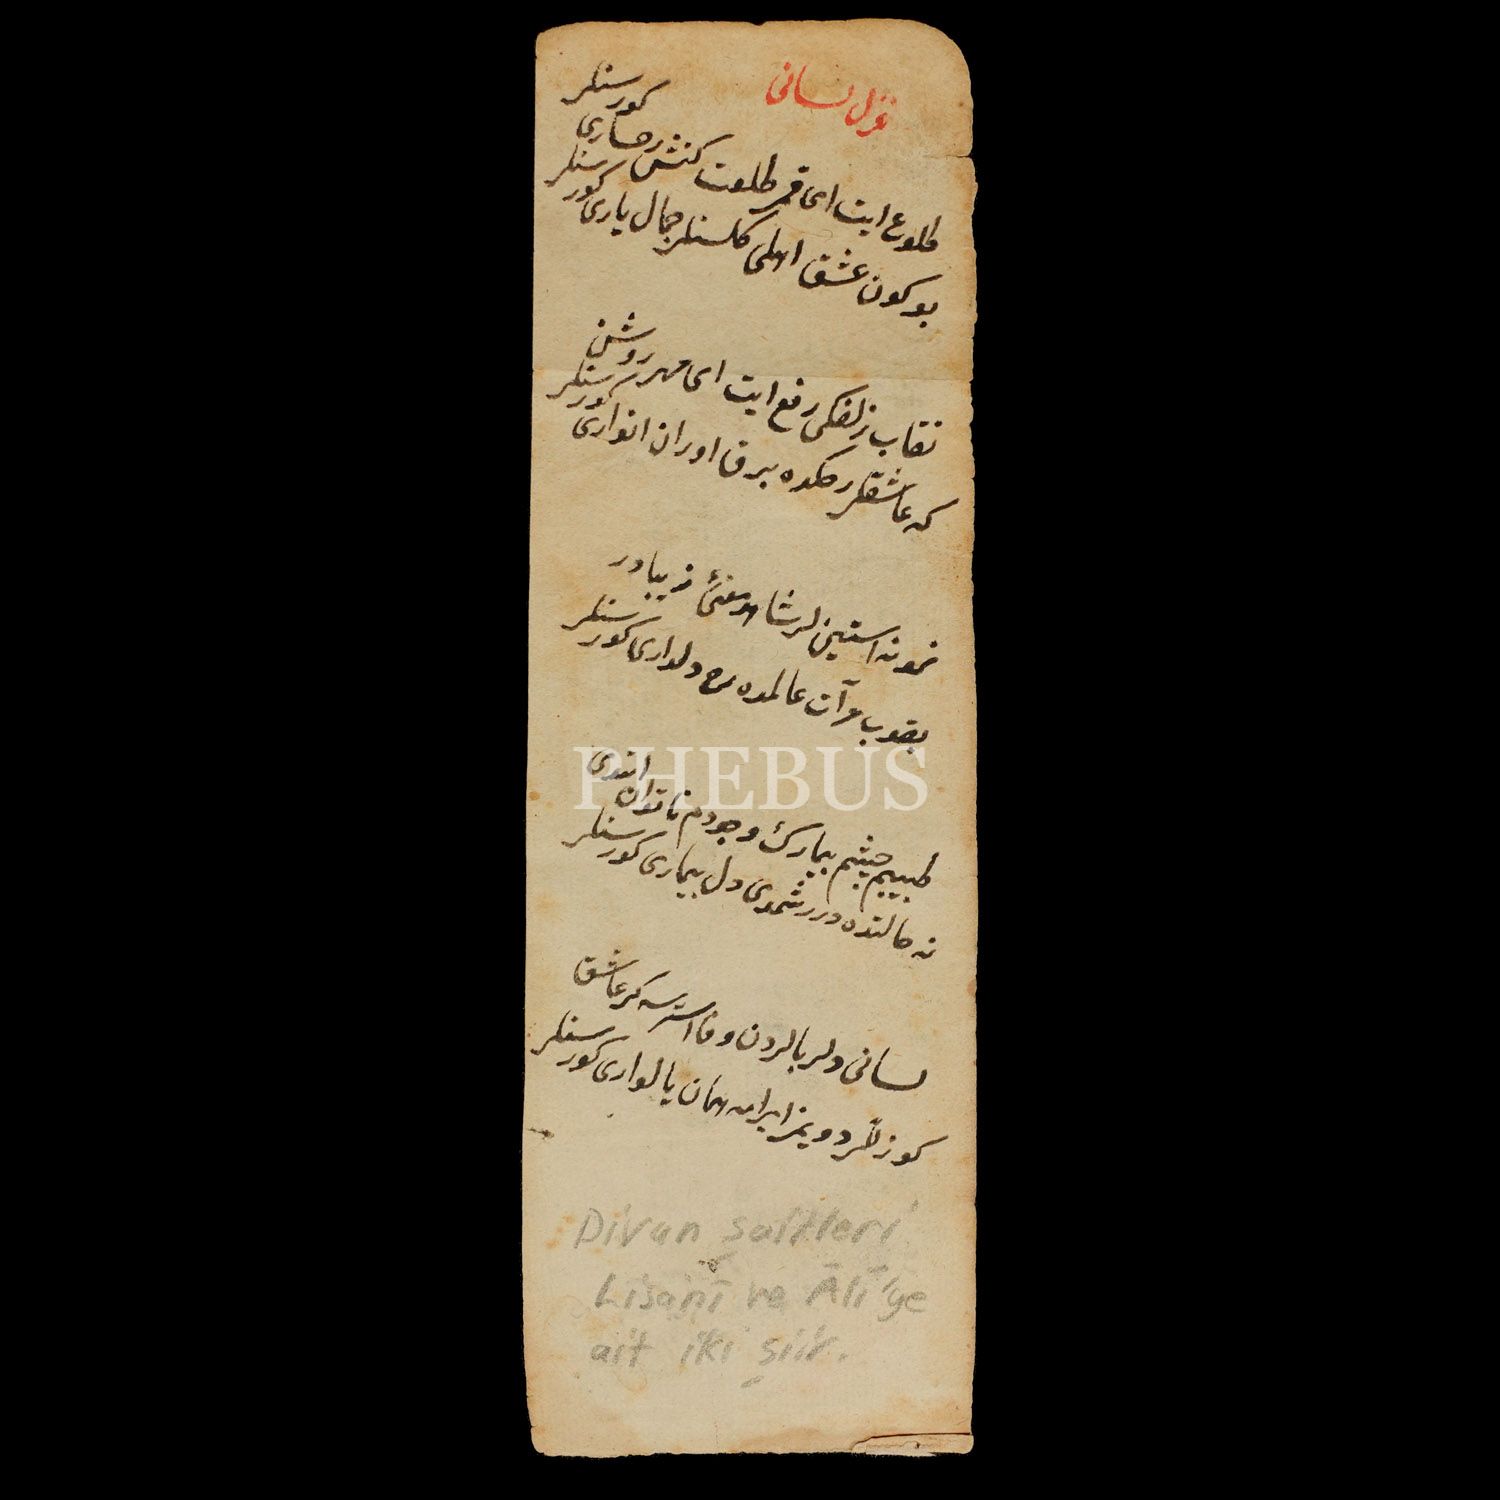 غزل لسانی
طلوع ایت ای قمر طلعت کنش رخساری کورسنلر
بو کون عشق اهلی کلسنلر جمال یاری کورسنلر
نقاب زلفکی رفع ایت ای مهر روشن
که عاشقلر رخکده برق اوران انواری کورسنلر
نمونه استین لر شاهد معنئ زیبادر
یقوب مرآت عالمده رخ دلداری کورسنلر
طبیبم چشم بیمارك وجودم ناتوان اتدی
نه حالتده در شمدی دل بیماری کورسنلر
لسانی دلربالردن وفا استرسه کر عاشق
کوزللر دویمز ابرامه همان یالواری کورسنلر
PHEBUS
Divan şairleri
Lisanî ve Âlî'ye
ait iki şiir.